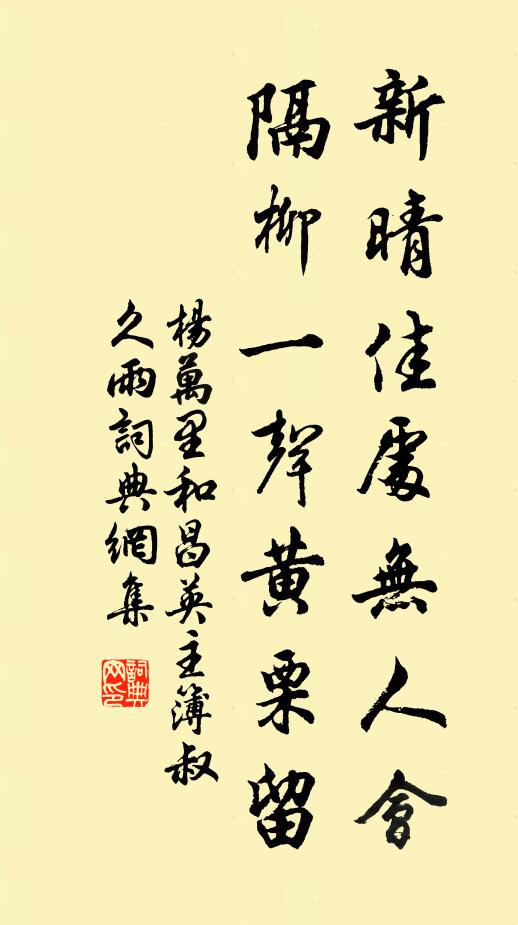 新晴佳處無人會
隔柳一聲黃栗留
楊萬里和昌英主簿叔
久雨詞典網集
詞典
网印